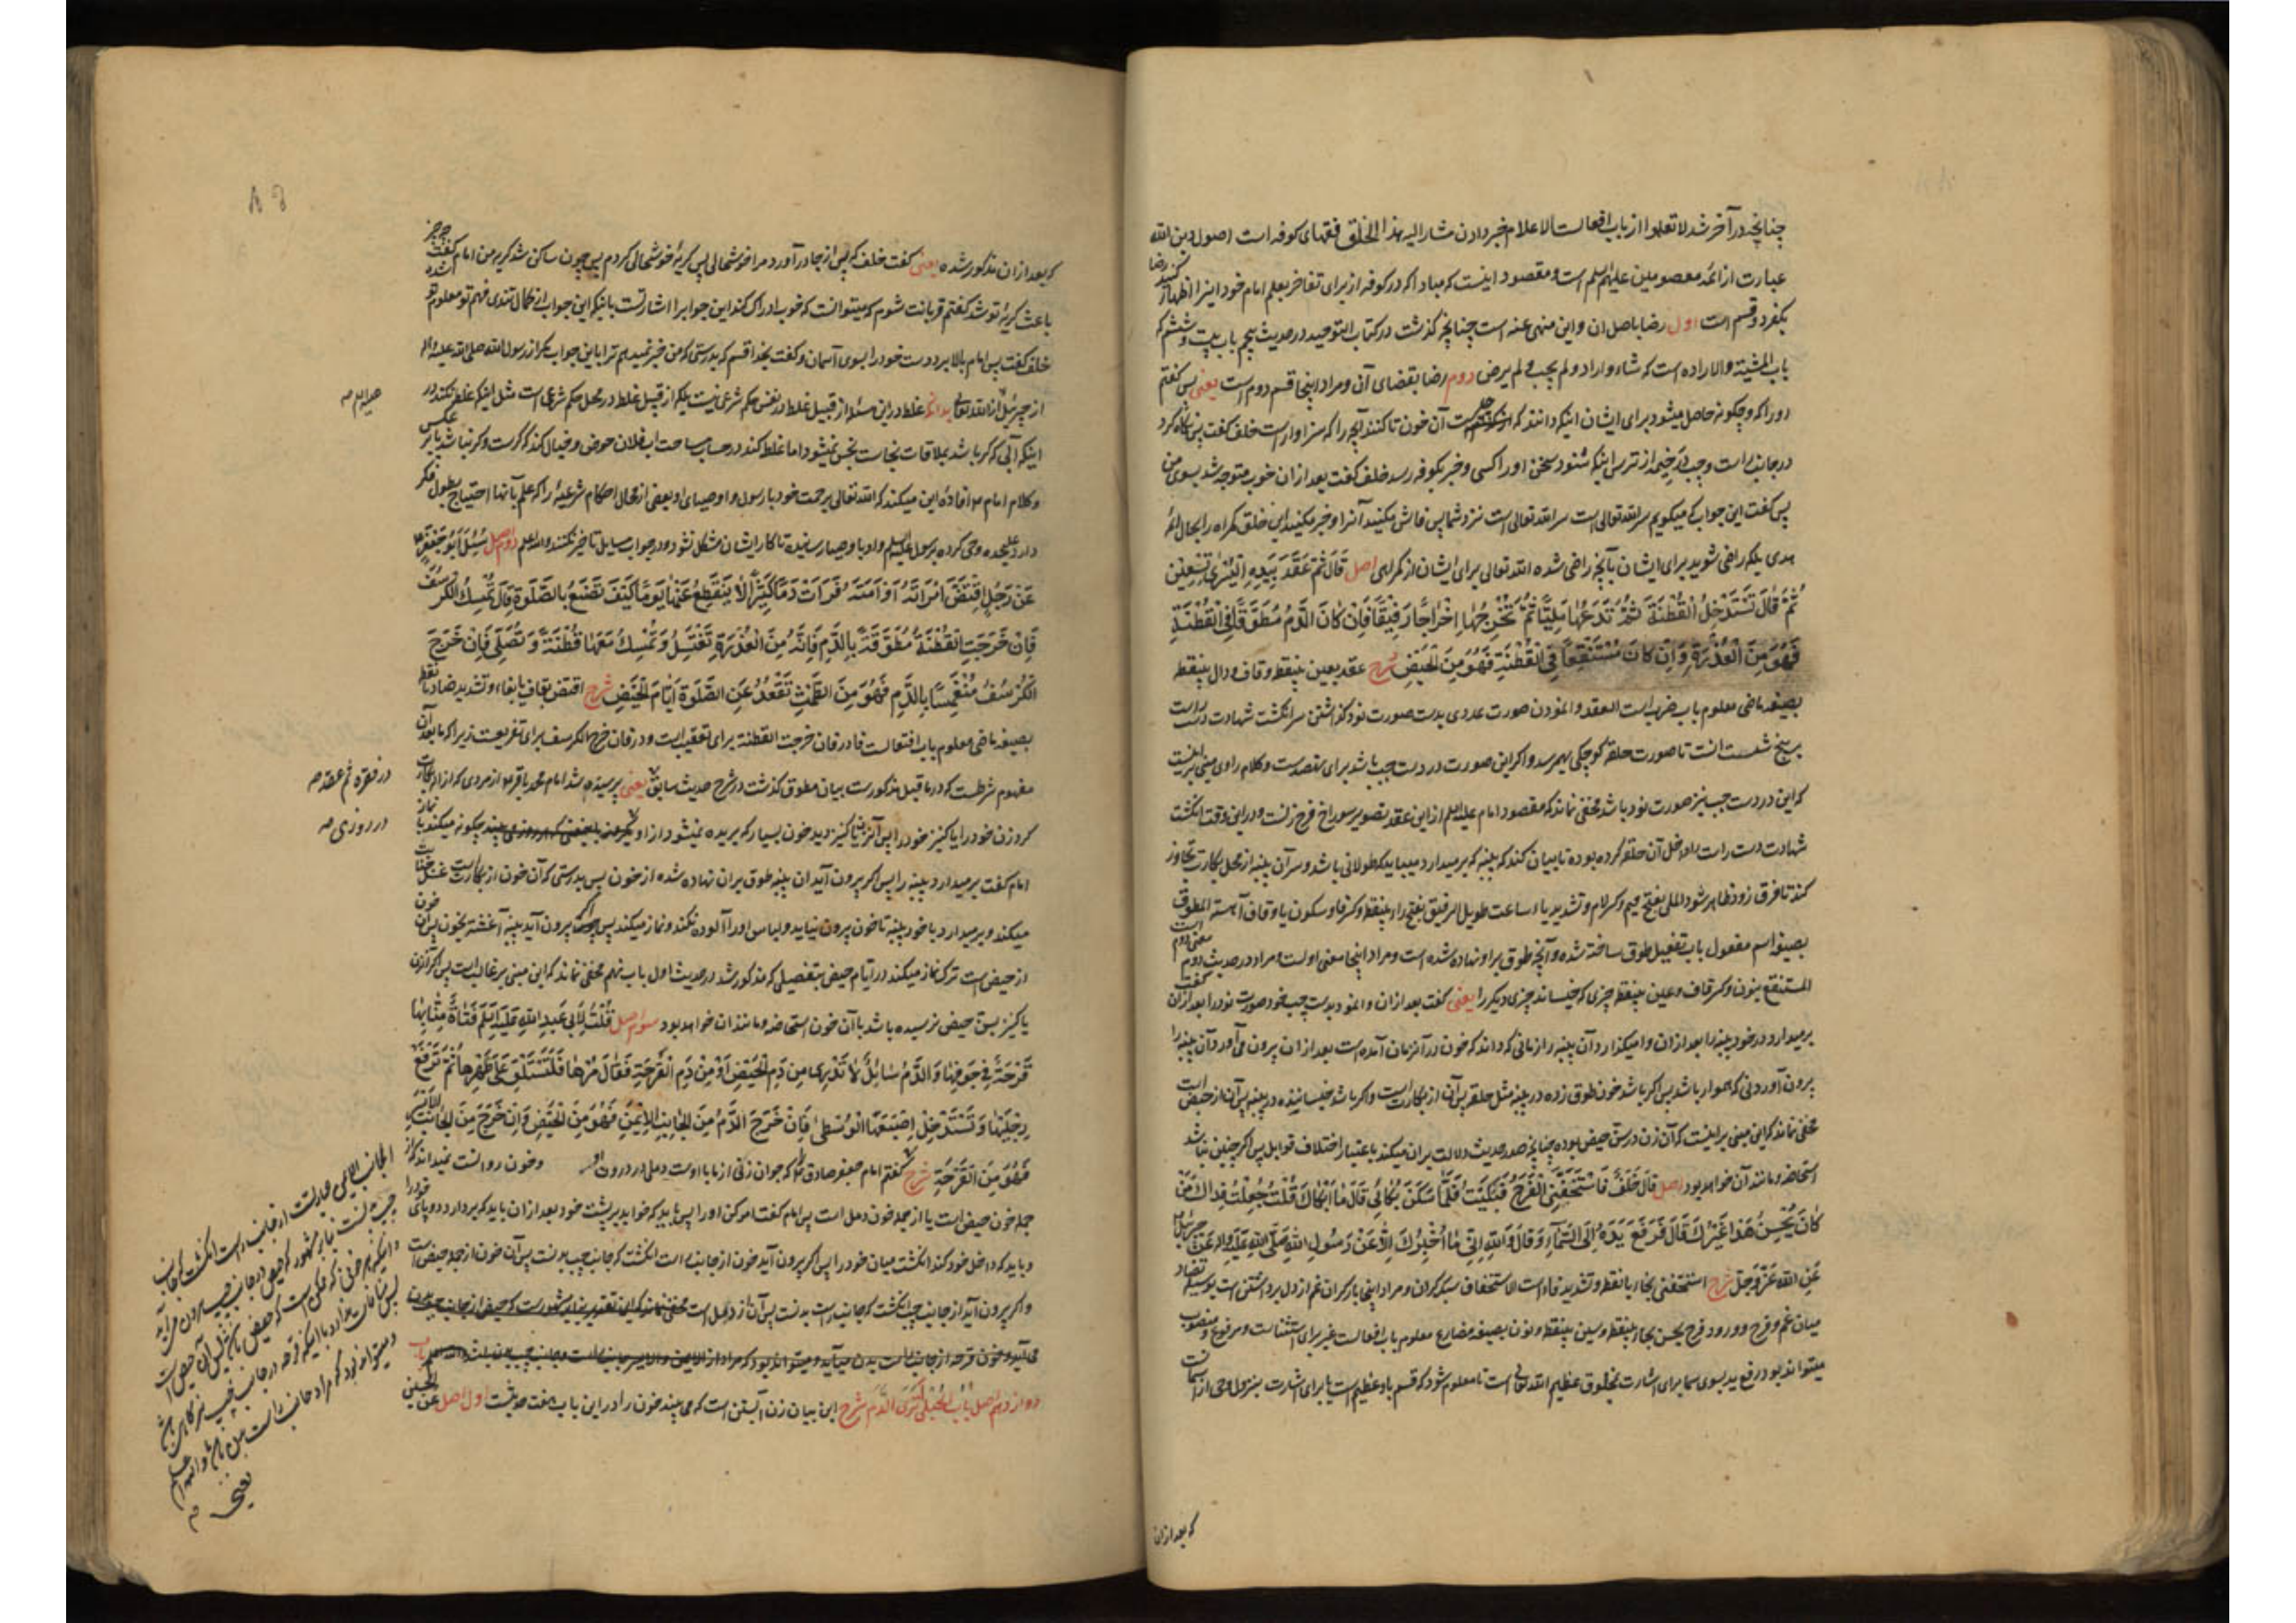 چنانچه در آخر شد لا تعلموا از باب افعالست الاعلام خبر دادن مشار الیه بهذا الخلق فقهای کوفه است اصول دین الله
عبارت از ائمه معصومین علیهم السلم است و مقصود اینست که مبادا که در کوفه از برای تفاخر بعلم امام خود اینرا اظهار کنید رضا
بکفر دو قسم است اول رضا باصل ان و این منهی عنه است چنانچه گذشت در کتاب التوحید در حدیث پنجم باب بیست و ششم که
باب المشیئة والاراده است که شاء و اراد و لم یحب و لم یرض دوم رضا بقضای آن و مراد اینجا قسم دوم است یعنی پس گفتم
اورا که و چگونه حاصل میشود برای ایشان اینکه دانند که از چیست آن خون تا کنند آنچه را که سزاوار است خلف گفت پس نگاه کرد
در جانب راست و چپ در خیمه از ترس اینکه شنود سخن اورا کسی و خبر بکوفه رسد خلف گفت بعد ازان خوب متوجه شد بسوی من
پس گفت این جواب که میگویم سر الله تعالی است سر الله تعالی است نزد شما پس فاش مکنید آنرا و خبر مکنید این خلق گمراه را بحال ائمه
هدی بلکه راضی شوید برای ایشان بآنچه راضی شده الله تعالی برای ایشان از گمراهی اصل قَالَ ثُمَّ عَقَدَ بِيَدِهِ الْيُسْرَى تِسْعِينَ
ثُمَّ قَالَ تَسْتَدْخِلُ الْقُطْنَةَ ثُمَّ تَدَعُهَا مَلِيًّا ثُمَّ تُخْرِجُهَا إِخْرَاجًا رَفِيقًا فَإِنْ كَانَ الدَّمُ مُطَوَّقًا فِي الْقُطْنَةِ
فَهُوَ مِنَ الْعُذْرَةِ وَإِنْ كَانَ مُسْتَنْقِعًا فِي الْقُطْنَةِ فَهُوَ مِنَ الْحَيْضِ شرح عقد بعین بینقطه و قاف و دال بینقطه
بصیغه ماضی معلوم باب ضرب است العقد وانمودن صورت عددی بدست صورت نود گذاشتن سر انگشت شهادت دست راست
بر بیخ شست است تا صورت حلقه کوچکی بهم رسد و اگر این صورت در دست چپ باشد برای نهصد است و کلام راوی مبنی بر اینست
که این در دست چپ نیز صورت نود باشد مخفی نماند که مقصود امام علیه السلم از این عقد تصویر سوراخ فرج زنست و در این وقت انگشت
شهادت دست راست را داخل آن حلقه کرده بوده تا بیان کند که پنبه که بر میدارد میباید که طولانی باشد و سر آن پنبه از محل بکارت تجاوز
کند تا فرق زود ظاهر شود الملی بفتح میم و کسر لام و تشدید یاء ساعت طویل الرفیق بفتح راء بینقطه و کسر فا و سکون یا و قاف آهسته المطوق
بصیغه اسم مفعول باب تفعیل طوق ساخته شده و آنچه طوق بر او نهاده شده است و مراد اینجا معنی اولست و مراد در حدیث دوم معنی دوم است
المستنقع بنون و کسر قاف و عین بینقطه چیزی که خیساند چیزی دیگر را یعنی گفت بعد ازان وانمود بدست چپ خود صورت نود را بعد ازان گفت
بر میدارد در خود پنبه را بعد ازان وامیگذارد آن پنبه را زمانی که داند که خون در آنزمان آمده است بعد ازان بیرون می‌آورد آن پنبه را
بیرون آوردنی که هموار باشد پس اگر باشد خون طوق زده در پنبه مثل حلقه پس آن از بکارتست و اگر باشد خیسانیده در پنبه پس آن از حیض است
مخفی نماند که این مبنی بر اینست که آن زن در سن حیض بوده چنانچه صدر حدیث دلالت بر ان میکند باعتبار اختلاف قوابل پس اگر چنین نباشد
استحاضه و مانند آن خواهد بود اصل قَالَ خَلَفٌ فَاسْتَخَفَّنِي الْفَرَحُ فَبَكَيْتُ فَلَمَّا سَكَنَ بُكَائِي قَالَ مَا أَبْكَاكَ قُلْتُ جُعِلْتُ فِدَاكَ مَنْ
كَانَ يُحْسِنُ هَذَا غَيْرُكَ قَالَ فَرَفَعَ يَدَهُ إِلَى السَّمَاءِ وَقَالَ وَاللَّهِ إِنِّي مَا أُخْبِرُكَ إِلَّا عَنْ رَسُولِ اللَّهِ صَلَّى اللَّهُ عَلَيْهِ وَآلِهِ عَنْ جَبْرَئِيلَ
عَنِ اللَّهِ عَزَّ وَجَلَّ شرح استخفنی بخاء با نقطه و تشدید فاء است الاستخفاف سبک کردن و مراد اینجا بار گران غم از دل برداشتن است بوسیله تضاد
میان غم و فرح و ورود فرح یحسن بحاء بینقطه و سین بینقطه و نون بصیغه مضارع معلوم باب افعالست غیر برای استثناست و مرفوع و منصوب
میتواند بود رفع ید بسوی سما برای اشارت بمخلوق عظیم الله تعالی است تا معلوم شود که قسم باو عظیم است یا برای اشارت بنزول وحی از آسمانست
که بعد ازان
که بعد ازان مذکور شده یعنی گفت خلف که پس از جا در آورد مرا خوشحالی پس گریهٔ خوشحالی کردم پس چون ساکن شد گریه من امام گفت چه چیز
باعث گریهٔ تو شد گفتم قربانت شوم که میتوانست که خوب ادراک کند این جواب را اشارتست باینکه این جواب از کمال تندی فهم تو معلوم تو شده
خلف گفت پس امام بالا برد دست خود را بسوی آسمان و گفت بخدا قسم که بدرستی که من خبر نمیدهم ترا باین جواب مگر از رسول الله صلی الله علیه وآله
از جبرئیل از الله تعالی بدانکه غلط در این مسئله از قبیل غلط در نفس حکم شرعی نیست بلکه از قبیل غلط در محل حکم شرعی است مثل اینکه غلط نکند در
اینکه آبی که کر باشد بملاقات نجاست نجس نمیشود اما غلط کند در حساب مساحت اب فلان حوض و خیال کند که کرست و کر نباشد یا بر عکس
و کلام امام ع افادهٔ این میکند که الله تعالی برحمت خود با رسول و اوصیای او بعضی از محال احکام شرعیه را که علم بآنها احتیاج بطول فکر
دارد علیحده وحی کرده برسول علیه السلم و او باوصیا رسانیده تا کار ایشان مشکل نشود و در جواب مسایل تاخیر نکنند والله اعلم دوم اصل سُئِلَ أَبُو جَعْفَرٍ ع
عَنْ رَجُلٍ اقْتَضَّ امْرَأَتَهُ أَوْ أَمَتَهُ فَرَأَتْ دَمًا كَثِيرًا لَا يَنْقَطِعُ عَنْهَا يَوْمًا كَيْفَ تَصْنَعُ بِالصَّلَوةِ قَالَ تُمْسِكُ الْكُرْسُفَ
فَإِنْ خَرَجَتِ الْقُطْنَةُ مُطَوَّقَةً بِالدَّمِ فَإِنَّهُ مِنَ الْعُذْرَةِ تَغْتَسِلُ وَتُمْسِكُ مَعَهَا قُطْنَةً وَتُصَلِّي فَإِنْ خَرَجَ
الْكُرْسُفُ مُنْغَمِسًا بِالدَّمِ فَهُوَ مِنَ الطَّمْثِ تَقْعُدُ عَنِ الصَّلَوةِ أَيَّامَ الْحَيْضِ شرح اقتض بقاف یا بفاء و تشدید ضاد با نقطه
بصیغه ماضی معلوم باب افتعالست فا در فان خرجت القطنة برای تعقیب است و در فان خرج الکرسف برای تفریعست زیرا که ما بعد آن
مفهوم شرطست که در ما قبل مذکورست بیان مطوق گذشت در شرح حدیث سابق یعنی پرسیده شد امام محمد باقر ع از مردی که ازاله بکارت
کرد زن خود را یا کنیز خود را پس آنزن یا کنیز دید خون بسیار که بریده نمیشود از او چگونه میکند با نماز
امام گفت بر میدارد پنبه را پس اگر بیرون آید ان پنبه طوق بران نهاده شده از خون پس بدرستی که آن خون از بکارتست غسل جنابت
میکند و بر میدارد با خود پنبه تا خون بیرون نیاید و لباس اورا آلوده نکند و نماز میکند پس اگر بیرون آید پنبه آغشته بخون پس آن خون
از حیض است ترک نماز میکند در ایام حیض بتفصیلی که مذکور شد در حدیث اول باب نهم مخفی نماند که این مبنی بر غالب است پس اگر آنزن
یا کنیز بسن حیض نرسیده باشد یا آن خون استحاضه و مانند ان خواهد بود سوم اصل قُلْتُ لِأَبِي عَبْدِ اللَّهِ عَلَيْهِ السَّلَمُ فَتَاةٌ مِنَّا بِهَا
قَرْحَةٌ فِي جَوْفِهَا وَالدَّمُ سَائِلٌ لَا تَدْرِي مِنْ دَمِ الْحَيْضِ أَوْ مِنْ دَمِ الْقَرْحَةِ فَقَالَ مُرْهَا فَلْتَسْتَلْقِ عَلَى ظَهْرِهَا ثُمَّ تَرْفَعُ
رِجْلَيْهَا وَتَسْتَدْخِلُ إِصْبَعَهَا الْوُسْطَى فَإِنْ خَرَجَ الدَّمُ مِنَ الْجَانِبِ الْأَيْمَنِ فَهُوَ مِنَ الْحَيْضِ وَإِنْ خَرَجَ مِنَ الْجَانِبِ الْأَيْسَرِ
فَهُوَ مِنَ الْقَرْحَةِ شرح گفتم امام جعفر صادق ع را که جوان زنی از ما با اوست دملی در درون او و خون روانست نمیداند که از
جمله خون حیض است یا از جمله خون دمل است پس امام گفت امر کن اورا پس باید که خوابد بر پشت خود بعد ازان باید که بردارد دو پای خود را
و باید که داخل خود کند انگشت میان خود را پس اگر بیرون آید خون از جانب راست انگشت که جانب چپ بدنست پس آن خون از جمله حیض است
و اگر بیرون آید از جانب چپ انگشت که جانب راست بدنست پس آن از دمل است مخفی نماند که این
می‌آید و خون قرحه از جانب راست بدن میآید و میتواند بود که مراد از الایمن و الایسر جانب راست و جانب چپ بدن باشد والله اعلم باب
دوازدهم اصل بَابُ الْحُبْلَى تَرَى الدَّمَ شرح این بیان زن آبستن است که می بیند خون را در این باب هفت حدیثست اول اصل عَنِ الْحُسَيْنِ
در فقره ثم عقد صه
در روزی صه